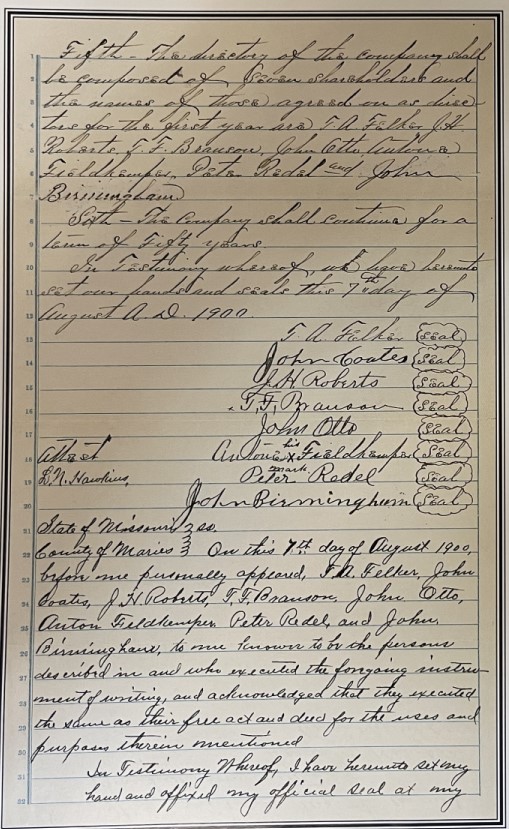 Fifth - The directory of the company shall
be composed of Seven shareholders and
the names of those agreed on as direc-
tors for the first year are T. A. Felker J. H.
Roberts, T. F. Branson, John Otto, Antone
Fieldkemper, Peter Redel and John
Birmingham
Sixth - The Company shall continue for a
term of Fifty years.
In Testimony whereof, we have hereunto
set our hands and seals this 7th day of
August A. D. 1900.
T. A. Felker Seal
John Coates Seal
J. H. Roberts Seal
T. F. Branson Seal
John Otto Seal
Attest Antone his x mark Fieldkemper Seal
L. N. Hawkins, Peter Redel Seal
John Birmingham Seal
State of Missouri } ss.
County of Maries } On this 7th day of August 1900,
before me personally appeared, T. A. Felker, John
Coates, J. H. Roberts, T. F. Branson, John Otto,
Anton Fieldkemper, Peter Redel, and John
Birmingham, to me known to be the persons
described in and who executed the forgoing instru-
ment of writing, and acknowledged that they executed
the same as their free act and deed for the uses and
purposes therein mentioned
In Testimony Whereof, I have hereunto set my
hand and affixed my official seal at my